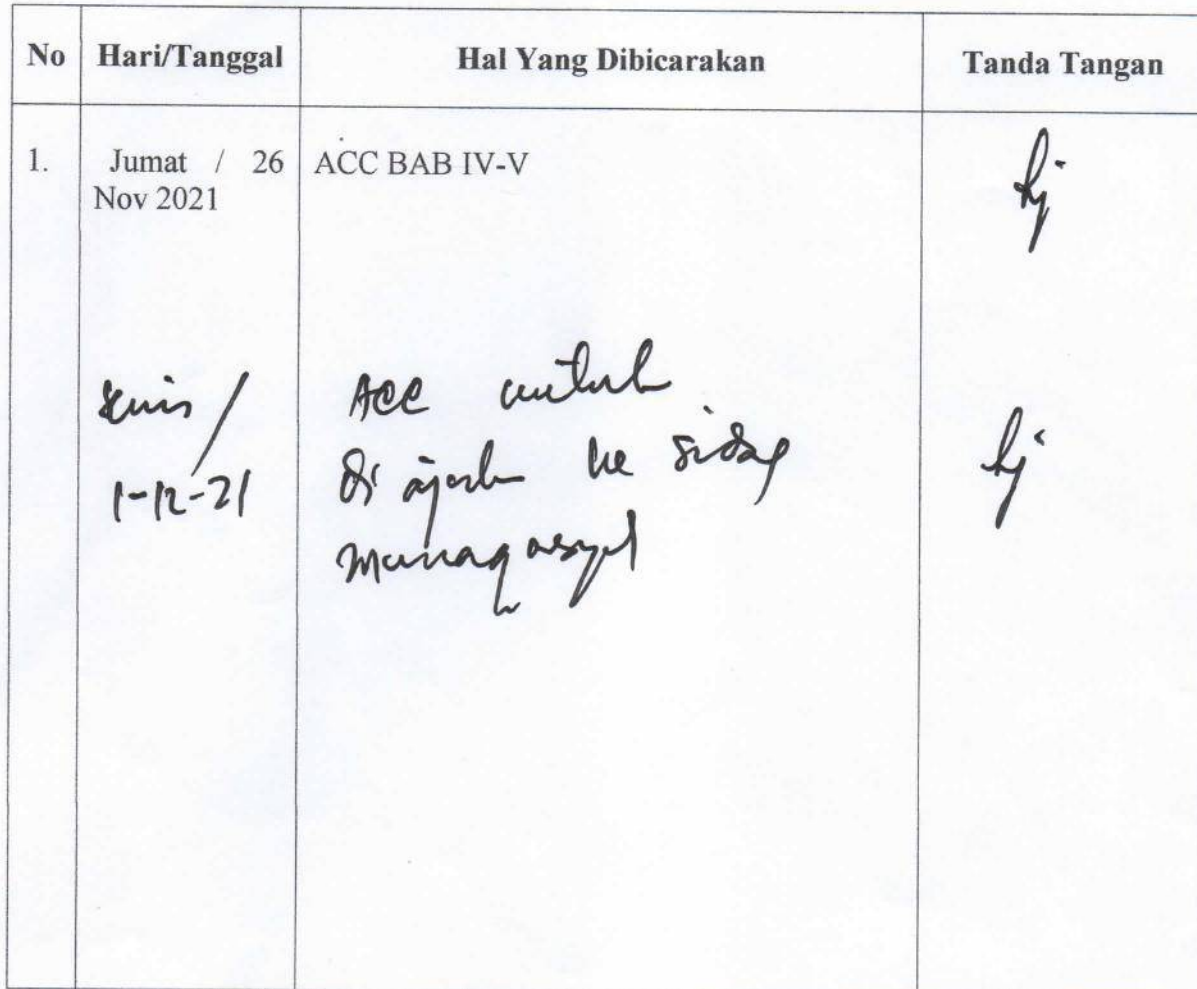 No Hari/Tanggal Hal Yang Dibicarakan Tanda Tangan
1. Jumat / 26 ACC BAB IV-V
Nov 2021
/ ACC untuk
1-12-21 di ajukan ke sidang
munaqasyah